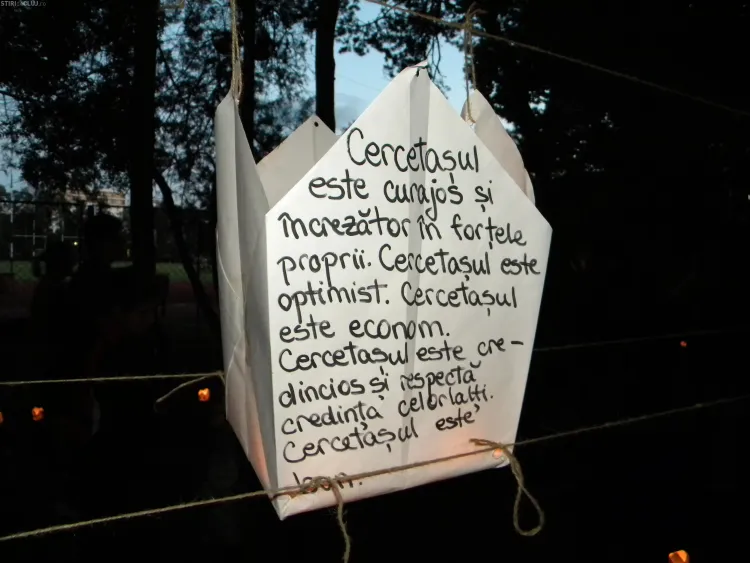 STIRIDECLUJ.ro
Cercetașul
este curajos și
încrezător în forțele
proprii. Cercetașul este
optimist. Cercetașul
este econom.
Cercetașul este cre-
dincios și respectă
credința celorlalți.
Cercetașul este